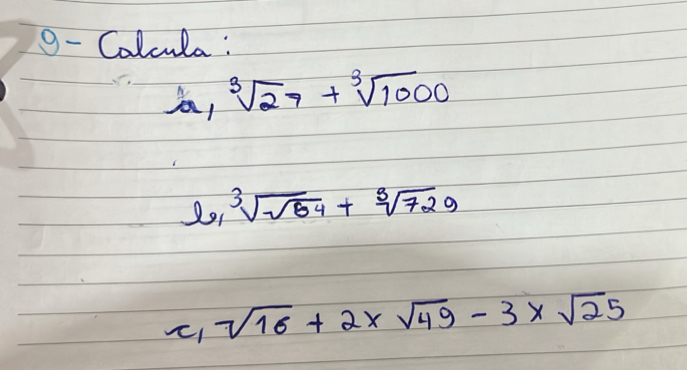 9- Calcula:
a, ³√27 + ³√1000
b, ³√√64 + ³√729
c, √16 + 2× √49 - 3 × √25